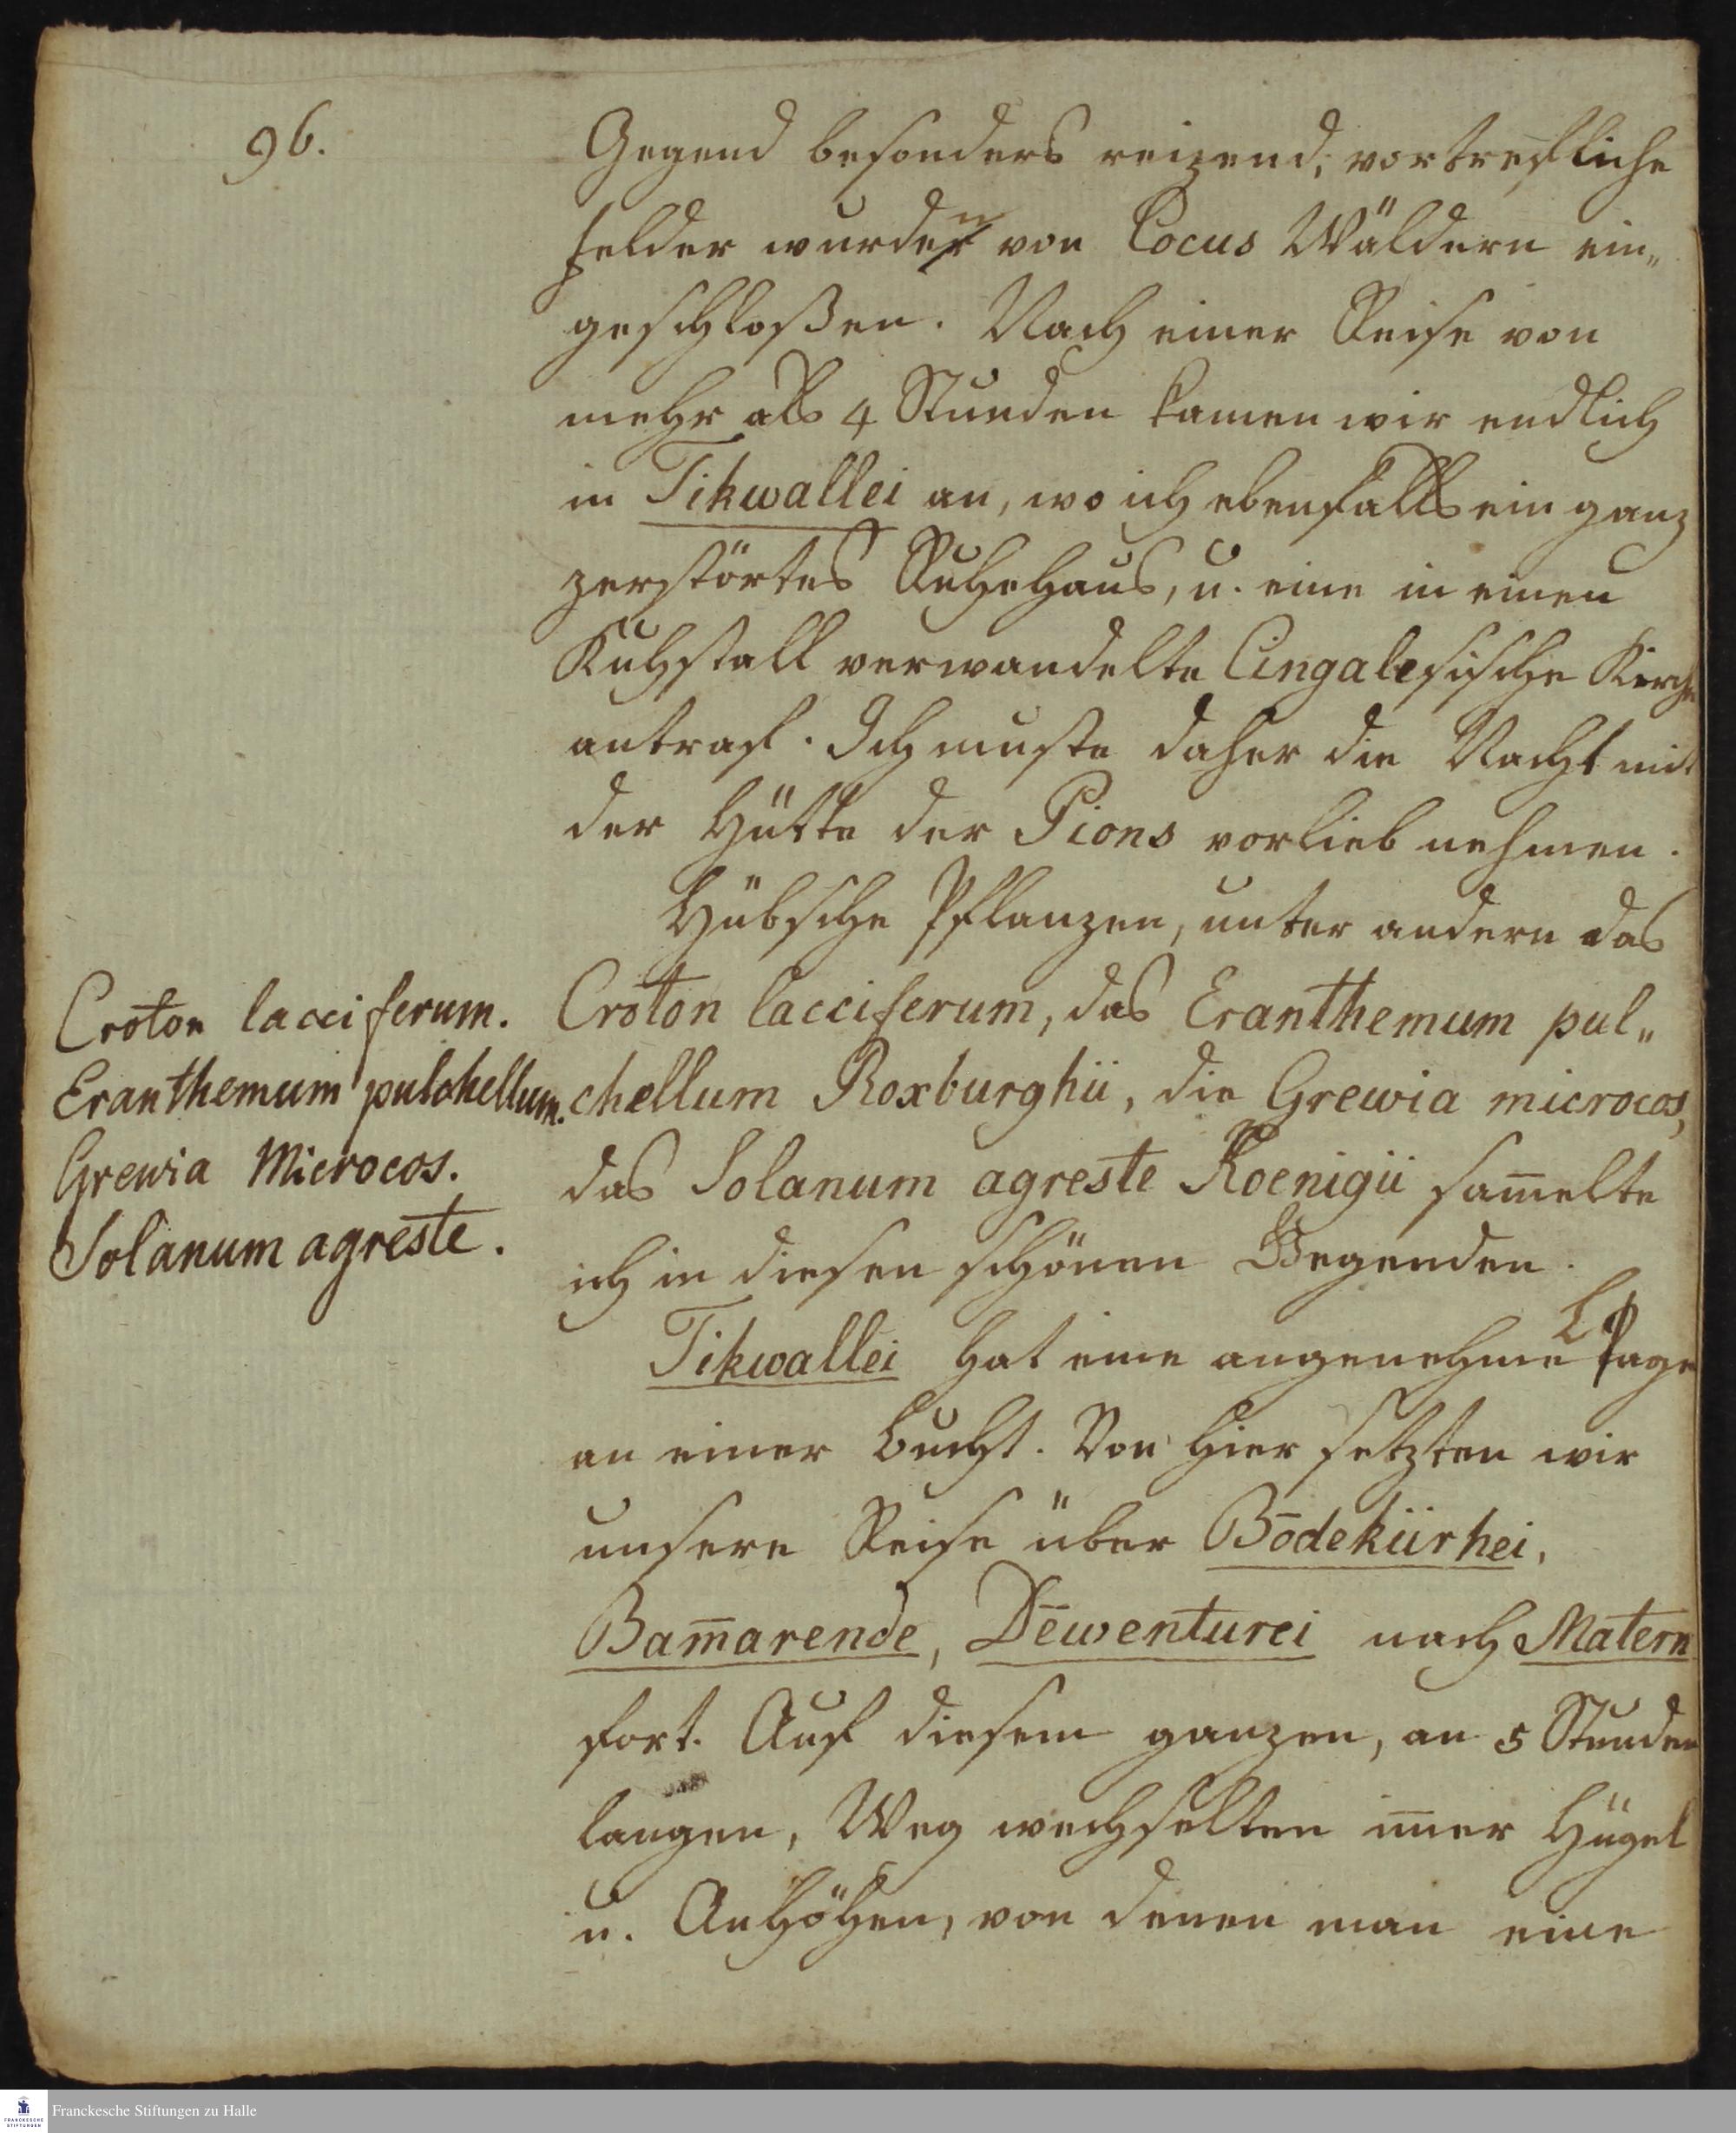 96.
Gegend besonders reizend; vortrefliche
Felder wurden von Cocus Wäldern ein„
geschloßen. Nach einer Reise von
mehr als 4 Stunden kamen wir endlich
in Tikwallei an, wo ich ebenfalls ein ganz
zerstörtes Ruhehaus, u. eine in einen
Kuhstall verwandelte Cingalesische Kirche
antraf. Ich muste daher die Nacht mit
der Hütte der Pions vorlieb nehmen.
Hübsche Pflanzen, unter andern das
Croton lacciferum, das Eranthemum pul„
chellum Roxburghii, die Grewia microcos,
das Solanum agreste Koenigii sam̅elte
ich in diesen schönen Gegenden.
Croton lacciferum.
Eranthemum pulchellum.
Grewia Microcos.
Solanum agreste.
Tikwallei hat eine angenehme Lage
an einer Bucht. Von hier setzten wir
unsere Reise über Bōdekürhei,
Bam̅arende, Dēwenturei nach Matern
fort. Auf diesem ganzen, an 5 Stunden
langen, Weg wechselten im̅er Hügel
u. Anhöhen, von denen man eine
Franckesche Stiftungen zu Halle